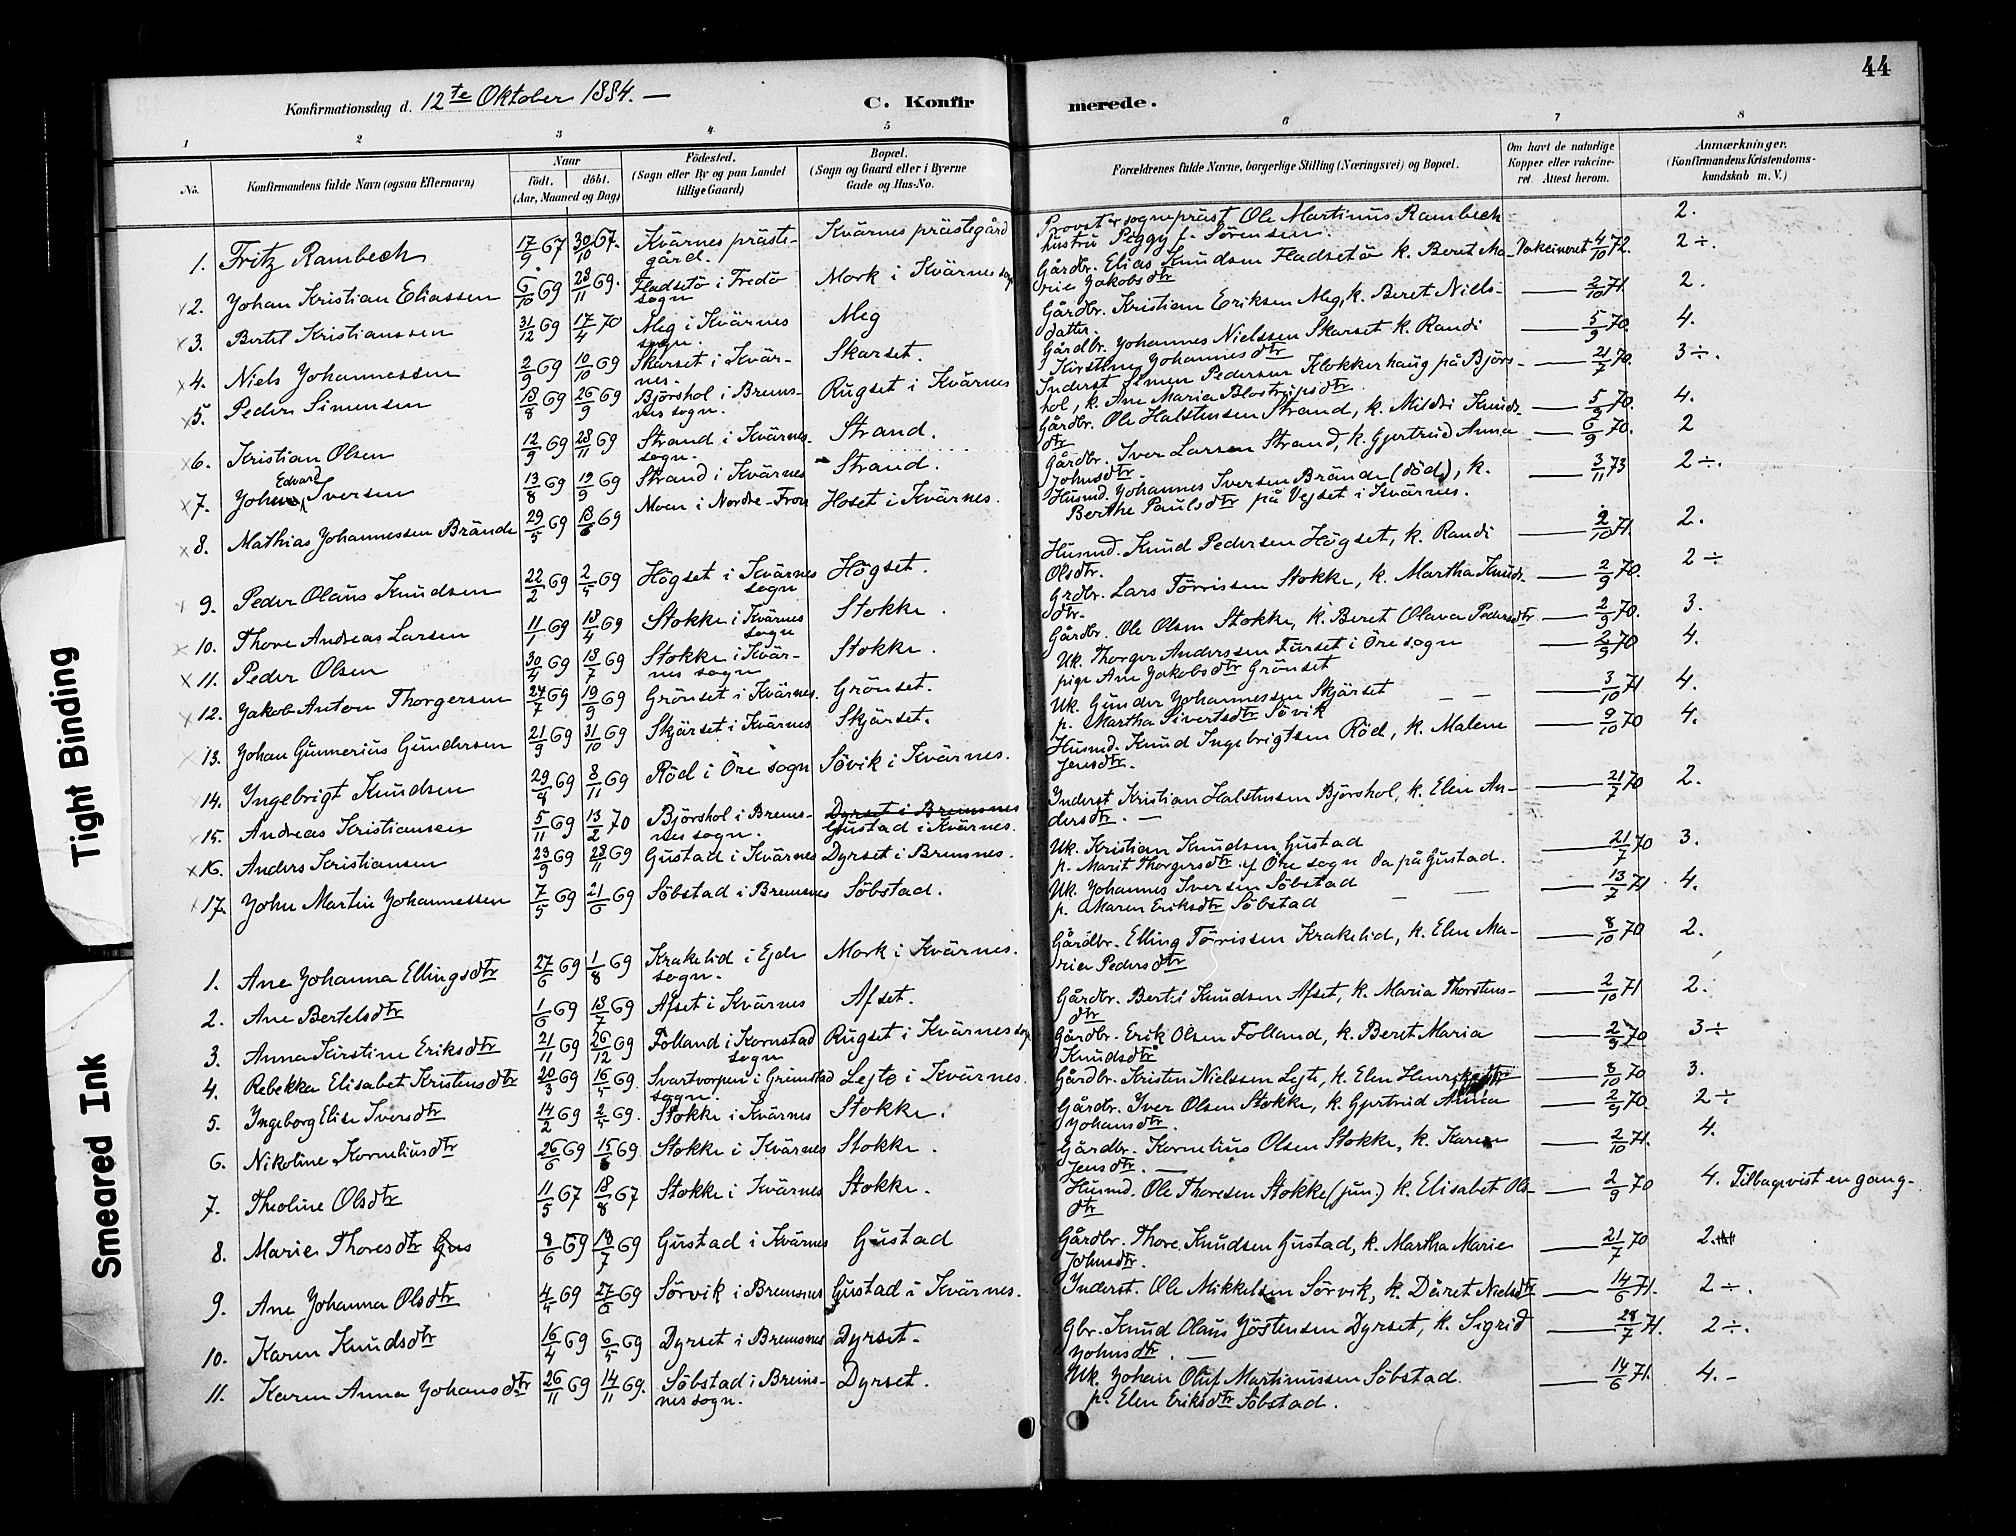 44
Konfirmationsdag d. 12te Oktober 1884. —
C. Konfirmerede.
1 2 3 4 5 6 7 8
No.
Konfirmandens fulde Navn (ogsaa Efternavn)
Naar
födt. döbt.
(Aar, Maaned og Dag)
Födested.
(Sogn eller By og paa Landet
tillige Gaard)
Bopæl.
(Sogn og Gaard eller i Byerne
Gade og Hus-No.
Forældrenes fulde Navne, borgerlige Stilling (Næringsvei) og Bopæl.
Om havt de naturlige
Kopper eller vakcine-
ret. Attest herom.
Anmærkninger.
(Konfirmandens Kristendoms-
kundskab m. V.)
1. Fritz Rambech 17/9 67 30/10 67. Kvärnes präste-
gård. Kvärnes prästegård Provst & sognepräst Ole Martinus Rambech
hustru Peggy f. Sörensen. Vakcineret 4/10 72. 2.
2. Johan Kristian Eliassen 6/10 69 28/11 69. Fladsetö i Fredö
sogn Mork i Kvärnes sogn Gårdbr. Elias Knudsen Fladsetö k. Beret Ma-
rie Jakobsdtr — 2/10 71. 2 ÷.
3. Bertel Kristianssen 31/12 69 17/4 70 Meg i Kvärnes
sogn. Meg Gårdbr. Kristian Eriksen Meg, k. Beret Niels-
datter. — 5/9 70. 2.
4. Niels Johannessen 2/9 69 10/10 69 Skarset i Kvär-
nes. Skarset. Gårdbr. Johannes Nielssen Skarset k. Randi
Kirstine Johannesdtr — 21/7 70. 4.
5. Peder Simensen 18/8 69 26/9 69 Björshol i Brems-
nes sogn. Rugset i Kvärnes Inderst Simen Pedersen Klokkerhaug på Björs-
hol, k. Ane Maria Blostrupsdtr. — 5/9 70. 3 ÷.
6. Kristian Olsen 12/9 69 28/11 69 Strand i Kvärnes
sogn. Strand. Gårdbr. Ole Halstensen Strand, k. Mildri Knuds-
dtr — 6/9 70. 4.
7. John Edvard Iversen 13/8 69 19/9 69 Strand i Kvärnes Strand. Gårdbr. Iver Larsen Strand, k. Gjertrud Anna
Johnsdtr. — 3/11 73 2
8. Mathias Johannessen Brände 29/5 69 18/6 69 Moen i Nordre-Fron Hoset i Kvärnes. Husmd. Johannes Iversen Brände (död), k.
Berthe Paulsdtr på Vejset i Kvärnes. 2 ÷.
9. Peder Olaus Knudsen 22/2 69 2/5 69 Högset i Kvärnes
sogn Högset. Husmd. Knud Pedersen Högset, k. Randi
Olsdtr. — 2/10 71. 2.
10. Thore Andreas Larsen 11/1 69 18/4 69 Stokke i Kvärnes
sogn Stokke. Grdbr. Lars Törrissen Stokke, k. Martha Knuds-
dtr. — 2/9 70. 2 ÷
11. Peder Olsen 30/4 69 18/7 69 Stokke i Kvär-
nes sogn Stokke. Gårdbr. Ole Olsen Stokke, k. Beret Olava Pedersdtr — 2/9 70. 3.
12. Jakob Anton Thorgersen 24/7 69 19/9 69 Grönset i Kvärnes. Grönset. Uk. Thorger Anderssen Furset i Öre sogn
pige Ane Jakobsdtr Grönset — 2/9 70 4.
13. Johan Gunnerius Gundersen 21/9 69 31/10 69 Skjärset i Kvärnes Skjärset. Uk. Gunder Johannessen Skjärset — —
p. Martha Sivertsdtr Sövik — 3/10 71 4.
14. Ingebrigt Knudsen 29/8 69 8/11 69 Röd i Öre sogn Sövik i Kvärnes. Husmd. Knud Ingebrigtsen Röd, k. Malene
Jensdtr. — 9/10 70 4.
15. Andreas Kristiansen 5/11 69 13/2 70 Björshol i Brems-
nes sogn. Dyrset i Bremsnes
Gustad i Kvärnes. Inderst Kristian Halstensen Björshol, k. Elen An-
dersdtr. — 21/7 70 2.
16. Anders Kristiansen 23/9 69 28/11 69 Gustad i Kvärnes Dyrset i Bremsnes. Uk. Kristian Knudsen Gustad
p. Marit Thorgersdtr af Öre sogn da på Gustad. — 21/7 70 3.
17. John Martin Johannessen 7/5 69 21/6 69 Söbstad i Bremsnes Söbstad. Uk. Johannes Iversen Söbstad —
p. Maren Eriksdtr Söbstad — 13/7 71 4.
1. Ane Johanna Ellingsdtr 27/6 69 1/8 69 Krakelid i Ejde
sogn. Mork i Kvärnes. Gårdbr. Elling Törrissen Krakelid, k. Elen Ma-
rie Pedersdtr — 8/10 70 2.
2. Ane Bertelsdtr 1/6 69 18/7 69 Afset i Kvärnes Afset. Gårdbr. Bertel Knudsen Afset, k. Maria Thorstens-
dtr — 2/10 71 2.
3. Anna Kirstine Eriksdtr 21/11 69 26/12 69 Folland i Kornstad
sogn Rugset i Kvärnes sogn Gårdbr. Erik Olsen Folland, k. Beret Maria
Knudsdtr — 2/9 70 3 ÷
4. Rebekka Elisabet Kristensdtr 20/3 69 16/5 69. Svartvorpen i Grimstad
sogn. Lejte i Kvärnes. Gårdbr. Kristen Nielssen Lejte, k. Elen Henriksdtr — 8/10 70 3.
5. Ingeborg Elise Iversdtr 14/2 69 2/5 69. Stokke i Kvärnes Stokke. Gårdbr. Iver Olsen Stokke, k. Gjertrud Anna
Johansdtr. — 2/9 70. 2 ÷
6. Nikoline Korneliusdtr 26/6 69 15/8 69. Stokke i Kvärnes Stokke. Gårdbr. Kornelius Olsen Stokke, k. Karen
Jensdtr. — 2/10 71. 4.
7. Theoline Olsdtr 11/5 67 18/8 67 Stokke i Kvärnes Stokke. Husmd. Ole Thoresen Stokke (jun.) k. Elisabet Ols-
dtr — 2/9 70 4. Tilbagevist en gang.
8. Marie Thoresdtr Gus 8/6 69 18/7 69 Gustad i Kvärnes Gustad Gårdbr. Thore Knudsen Gustad, k. Martha Marie
Johnsdtr. — 21/7 70 2.
9. Ane Johanna Olsdtr 4/5 69 27/6 69 Sörvik i Bremsnes Gustad i Kvärnes. Inderst. Ole Mikkelsen Sörvik, k. Deiret Nielsdtr — 14/6 71. 2 ÷.
10. Karen Knudsdtr 16/4 69 6/5 69 Dyrset i Bremsnes Dyrset. Gbr. Knud Olaus Jöstensen Dyrset, k. Sigrid
Johnsdtr. — 28/7 71. 2 ÷.
11. Karen Anna Johansdtr 26/11 69 14/11 69. Söbstad i Brems-
nes sogn. Dyrset. Uk. Johan Oluf Martinussen Söbstad.
p. Elen Eriksdtr Söbstad. — 14/6 71. 4. -
Tight Binding
Smeared Ink